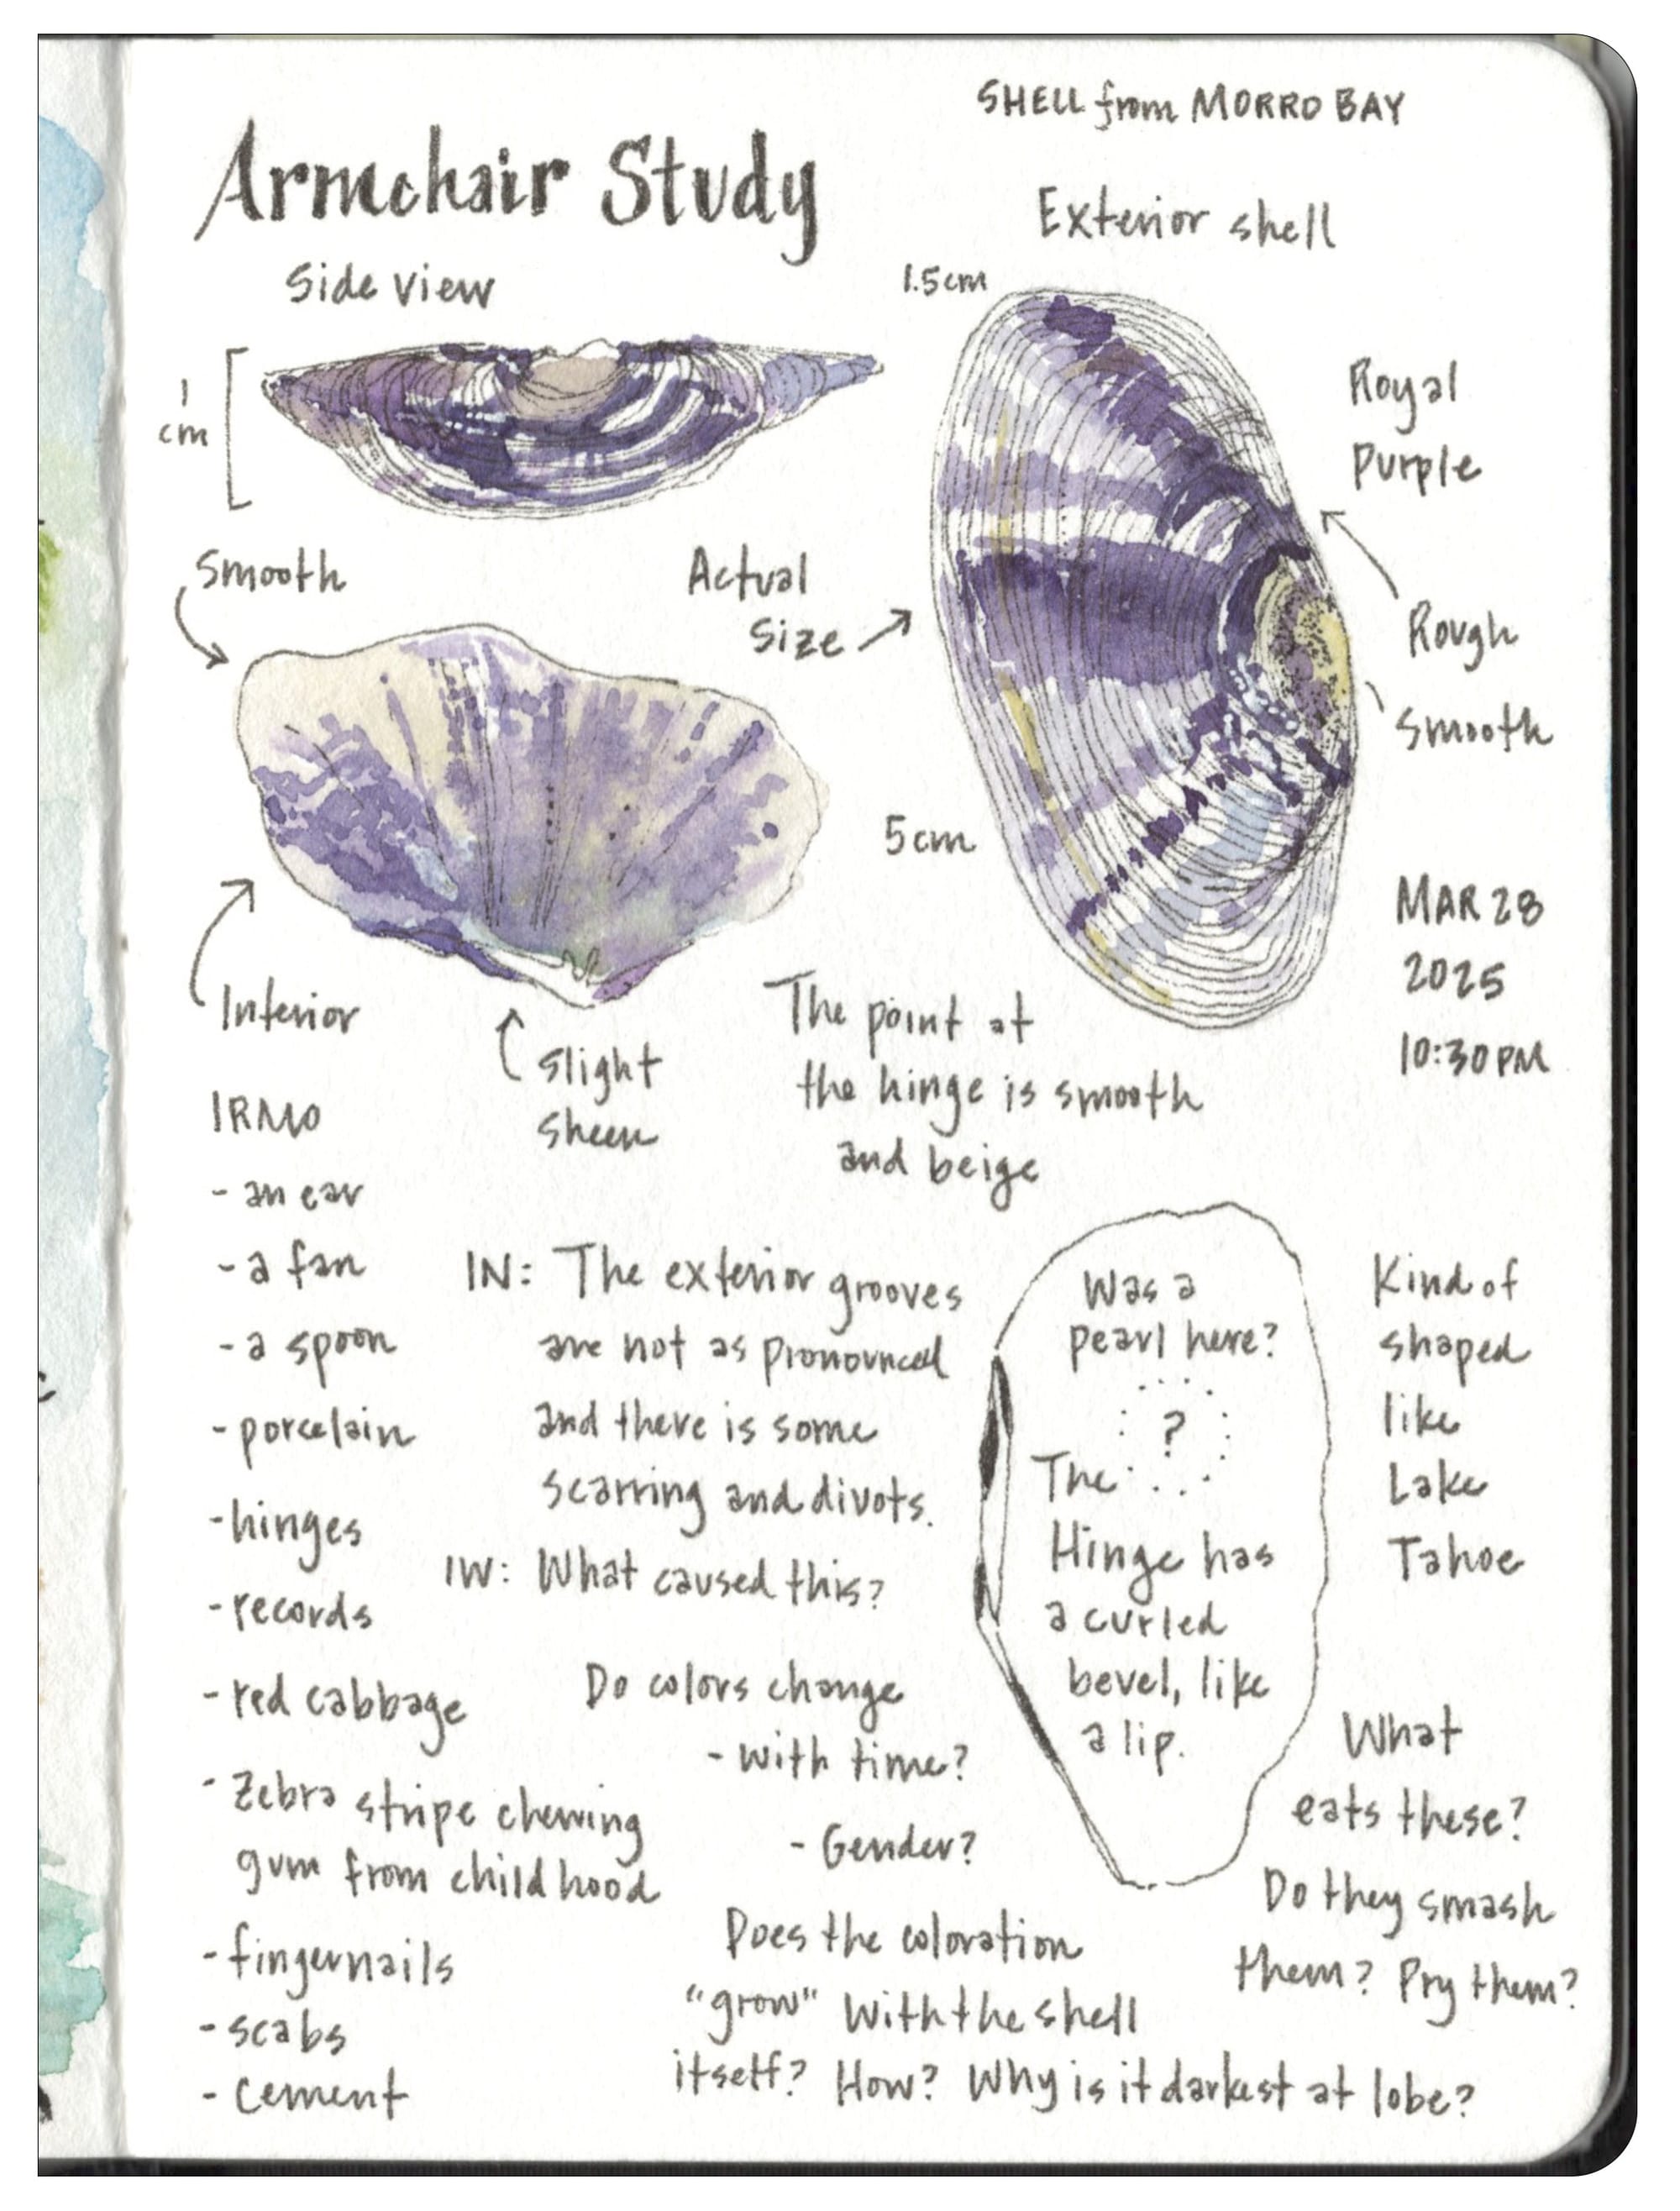 SHELL from MORRO BAY
Armchair Study
Exterior shell
Side View
1.5cm
1
cm
Royal
Purple
Smooth
Actual
Size
Rough
Smooth
5cm
MAR 28
2025
10:30PM
Interior
Slight
Sheen
The point at
the hinge is smooth
and beige
IRMO
- an ear
- a fan
- a spoon
- porcelain
- hinges
- records
- red cabbage
- Zebra stripe chewing
gum from childhood
- fingernails
- scabs
- cement
IN: The exterior grooves
are not as pronounced
and there is some
scarring and divots.
IW: What caused this?
Do colors change
- with time?
- Gender?
Does the coloration
"grow" With the shell
itself? How? Why is it darkest at lobe?
Was a
pearl here?
?
The
Hinge has
a curled
bevel, like
a lip.
Kind of
shaped
like
Lake
Tahoe
What
eats these?
Do they smash
them? Pry them?